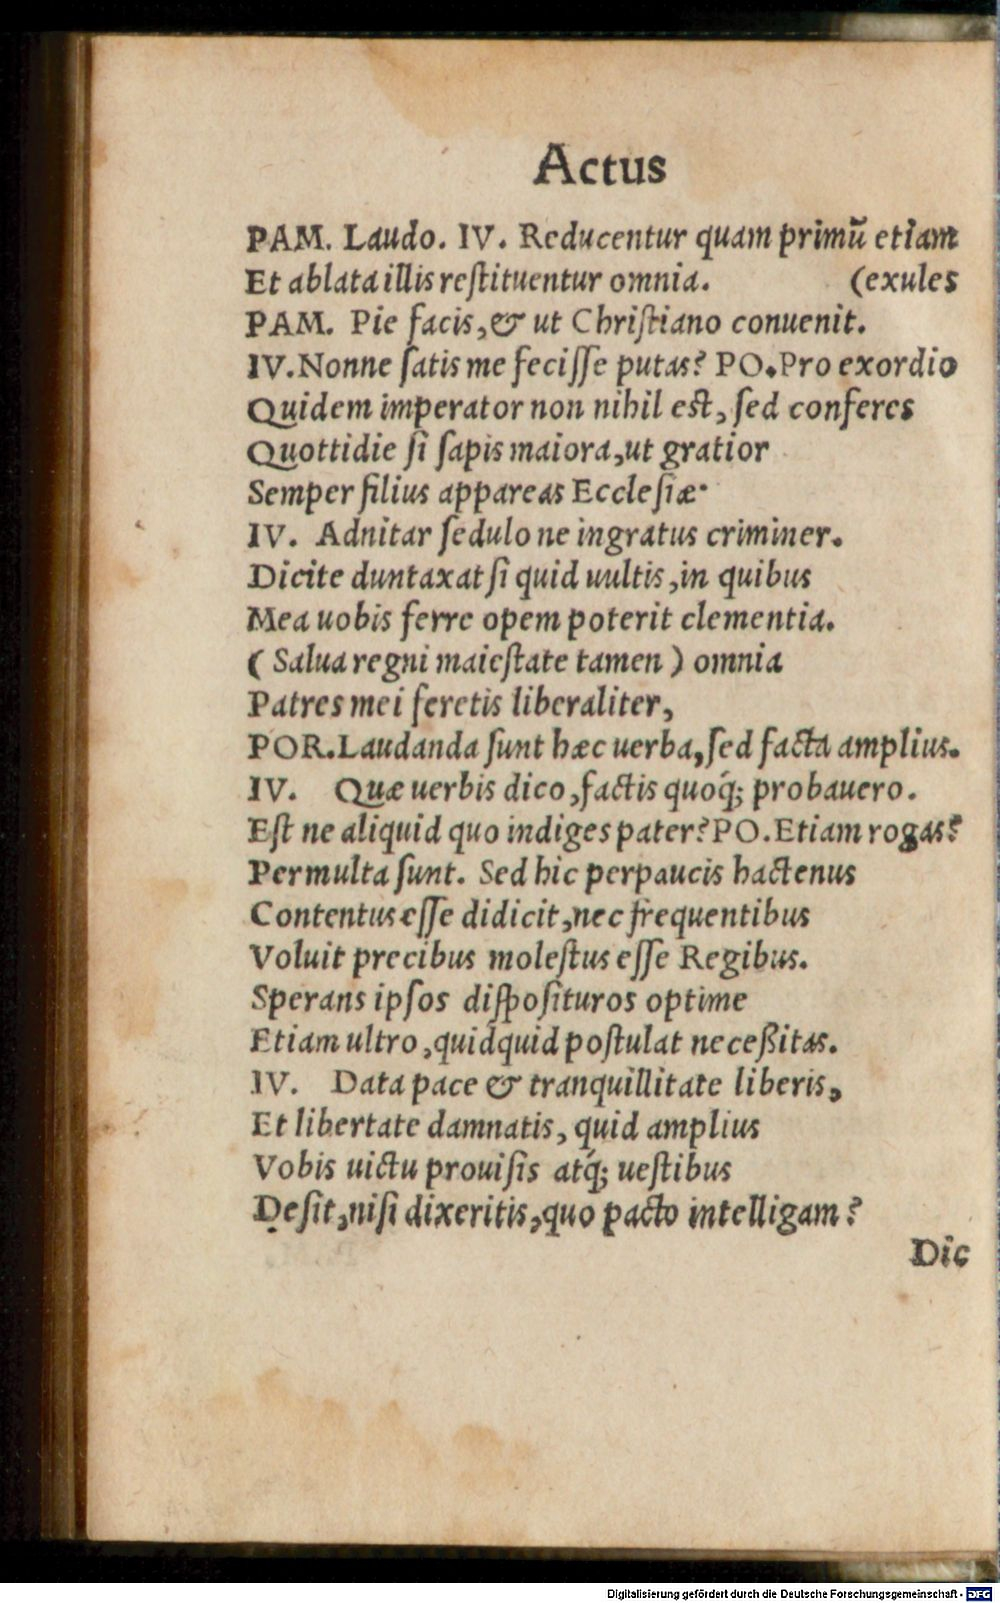 Actus
PAM. Laudo. IV. Reducentur quam primũ etiam
Et ablata illis reſtituentur omnia. (exules
PAM. Pie facis,& ut Chriſtiano conuenit.
IV.Nonne ſatis me feciſſe putas? PO.Pro exordio
Quidem imperator non nihil est, ſed conferes
Quottidie ſi ſapis maiora,ut gratior
Semper filius appareas Eccleſiæ·
IV. Adnitar ſedulo ne ingratus criminer.
Dicite duntaxat ſi quid uultis,in quibus
Mea uobis ferre opem poterit clementia.
( Salua regni maieſtate tamen ) omnia
Patres mei feretis liberaliter,
POR.Laudanda ſunt hæc uerba,ſed facta amplius.
IV. Quæ uerbis dico,factis quoq́; probauero.
Eſt ne aliquid quo indiges pater?PO.Etiam rogas?
Permulta ſunt. Sed hic perpaucis hactenus
Contentus eſſe didicit,nec frequentibus
Voluit precibus moleſtus eſſe Regibus.
Sperans ipſos diſpoſituros optime
Etiam ultro,quidquid poſtulat neceßitas.
IV. Data pace & tranquillitate liberis,
Et libertate damnatis, quid amplius
Vobis uictu prouiſis atq́; ueſtibus
Deſit,niſi dixeritis,quo pacto intelligam?
Dic
Digitalisierung gefördert durch die Deutsche Forschungsgemeinschaft - DFG